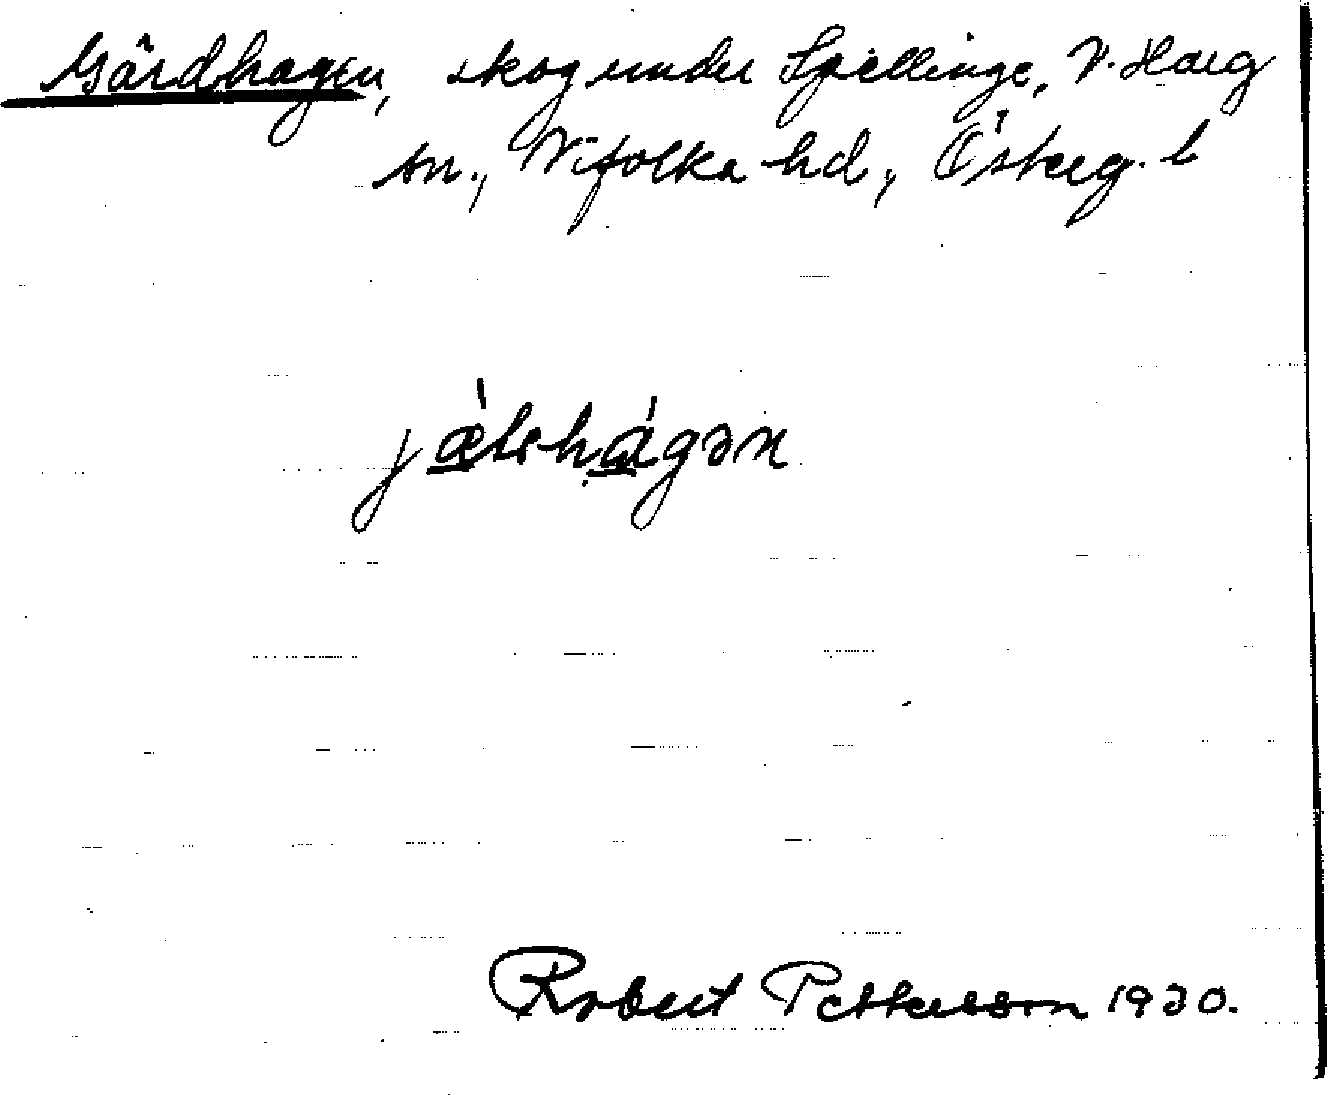 Gärdhagen, skog under Spellinge, V. Harg
sn., Vifolka hd, Österg. l
Robert Pettersson 1930.